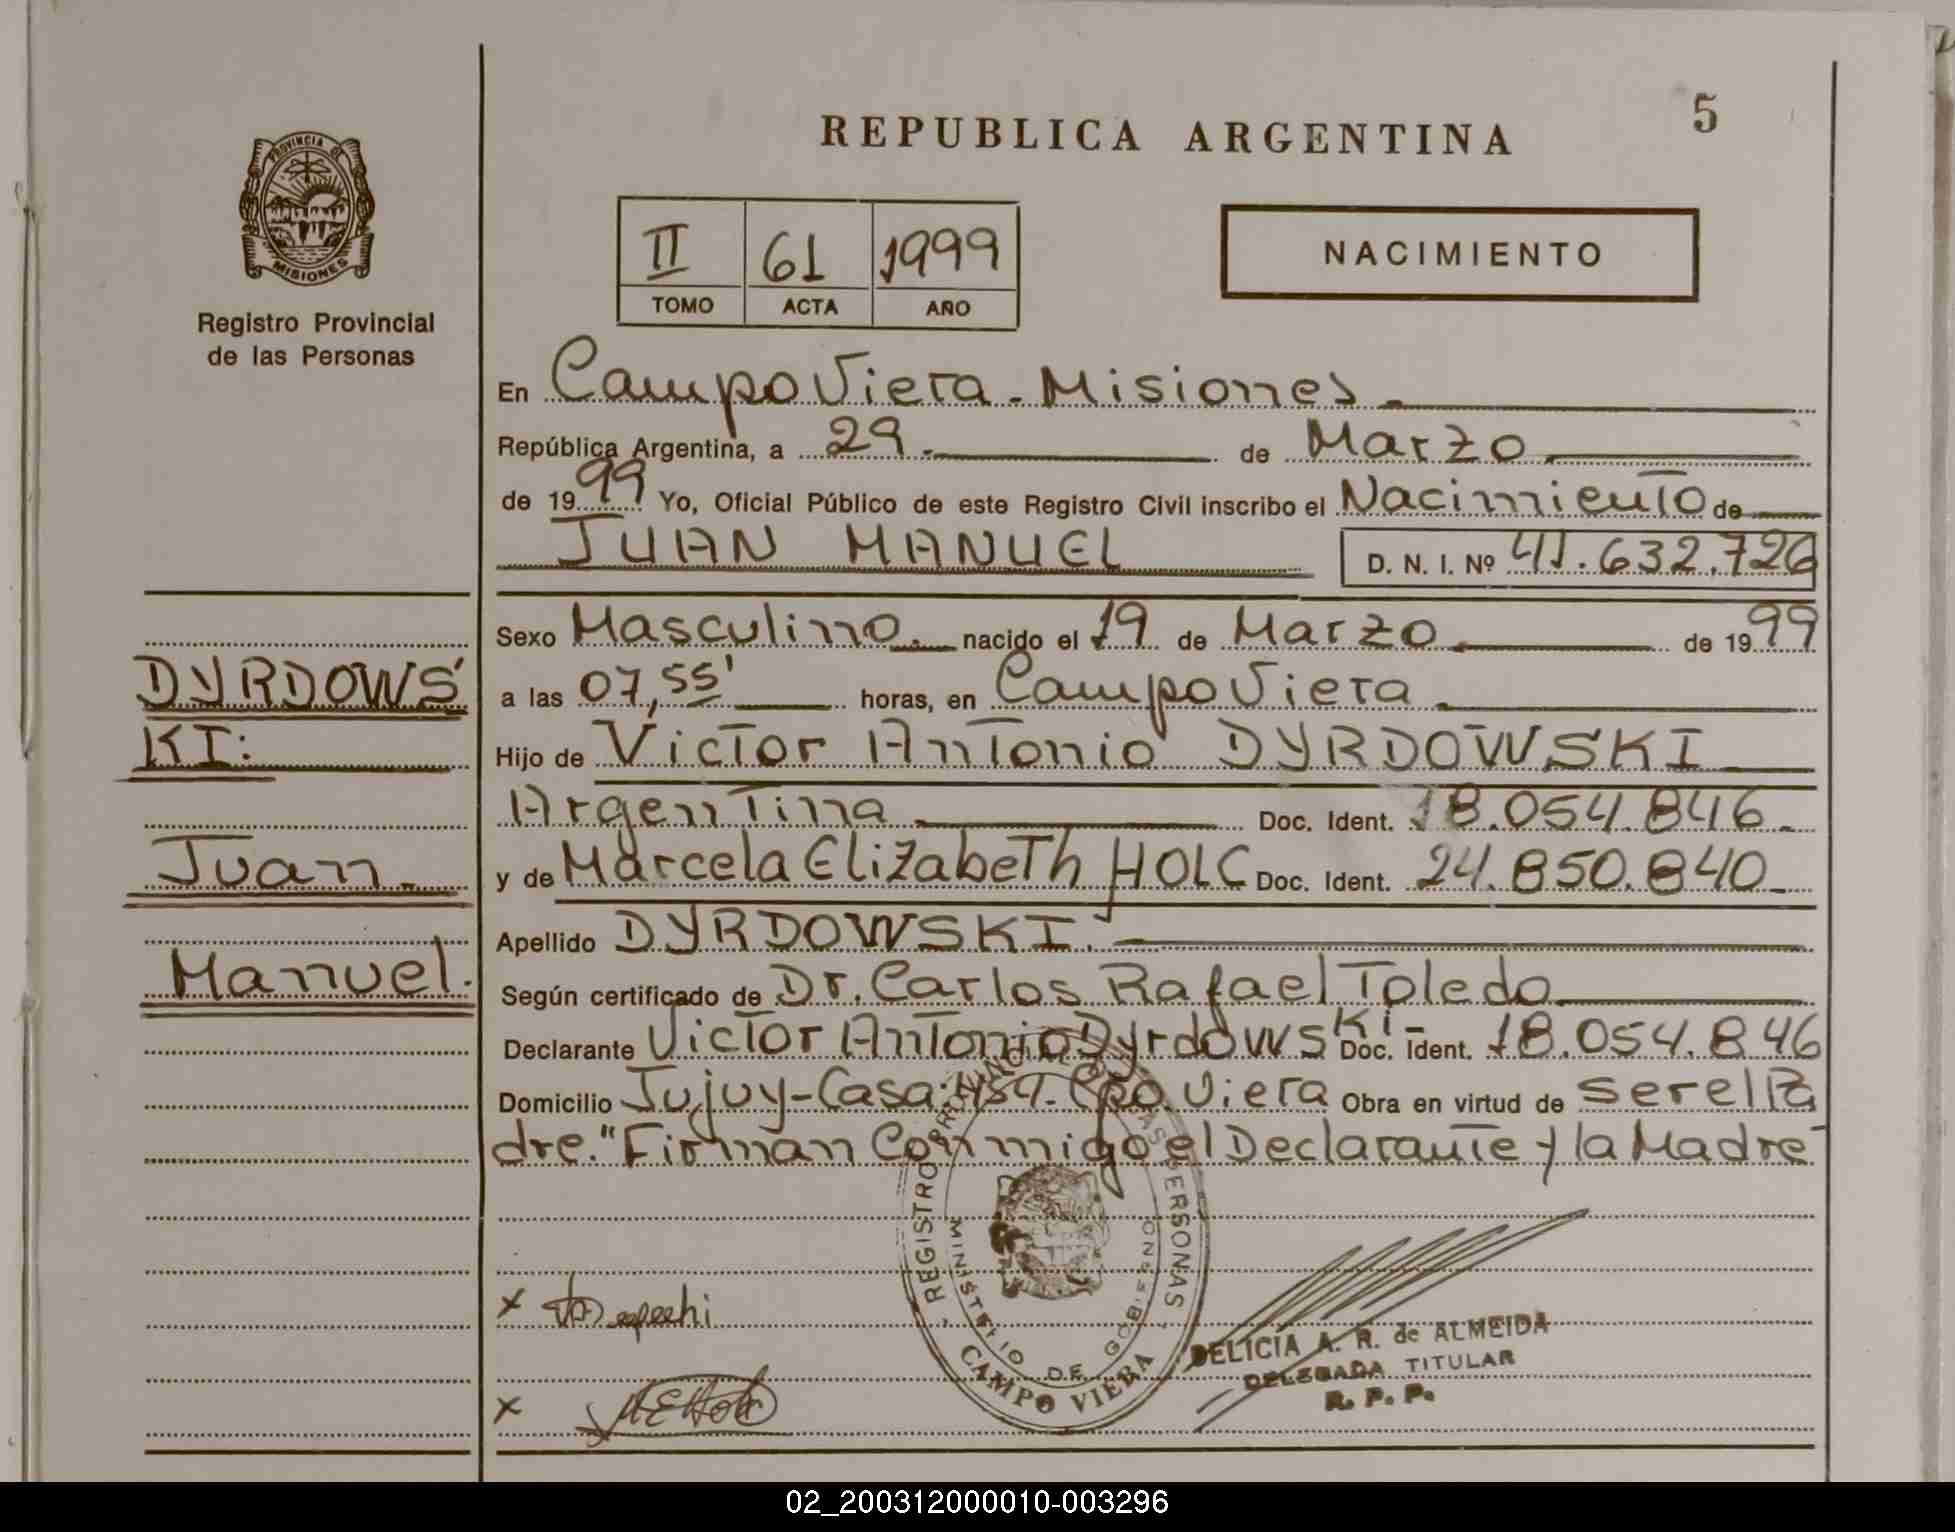 5
REPUBLICA ARGENTINA
PROVINCIA DE
MISIONES
Registro Provincial
de las Personas
II 61 1999
TOMO ACTA AÑO
NACIMIENTO
En Campo Viera - Misiones.
República Argentina, a 29. de Marzo
de 1999 Yo, Oficial Público de este Registro Civil inscribo el Nacimiento de
JUAN MANUEL D. N. I. Nº 41.632.726
Sexo Masculino. nacido el 19 de Marzo de 1999
a las 07,55' horas, en Campo Viera
Hijo de Victor Antonio DYRDOWSKI
Argentina Doc. Ident. 18.054.846.
y de Marcela Elizabeth HOLC Doc. Ident. 24.850.840
Apellido DYRDOWSKI.
Según certificado de Dr. Carlos Rafael Toledo
Declarante Victor Antonio Dyrdowski- Doc. Ident. 18.054.846
Domicilio Jujuy-Casa: 459. Cpo. Viera Obra en virtud de ser el Pa
dre. "Firman Conmigo el Declarante y la Madre"
DYRDOWS
KI:
Juan
Manuel.
REGISTRO PERSONAS
MINISTERIO DE GOBIERNO
CAMPO VIERA
x
x
DELICIA A. R. de ALMEIDA
DELEGADA TITULAR
R. P. P.
02_200312000010-003296